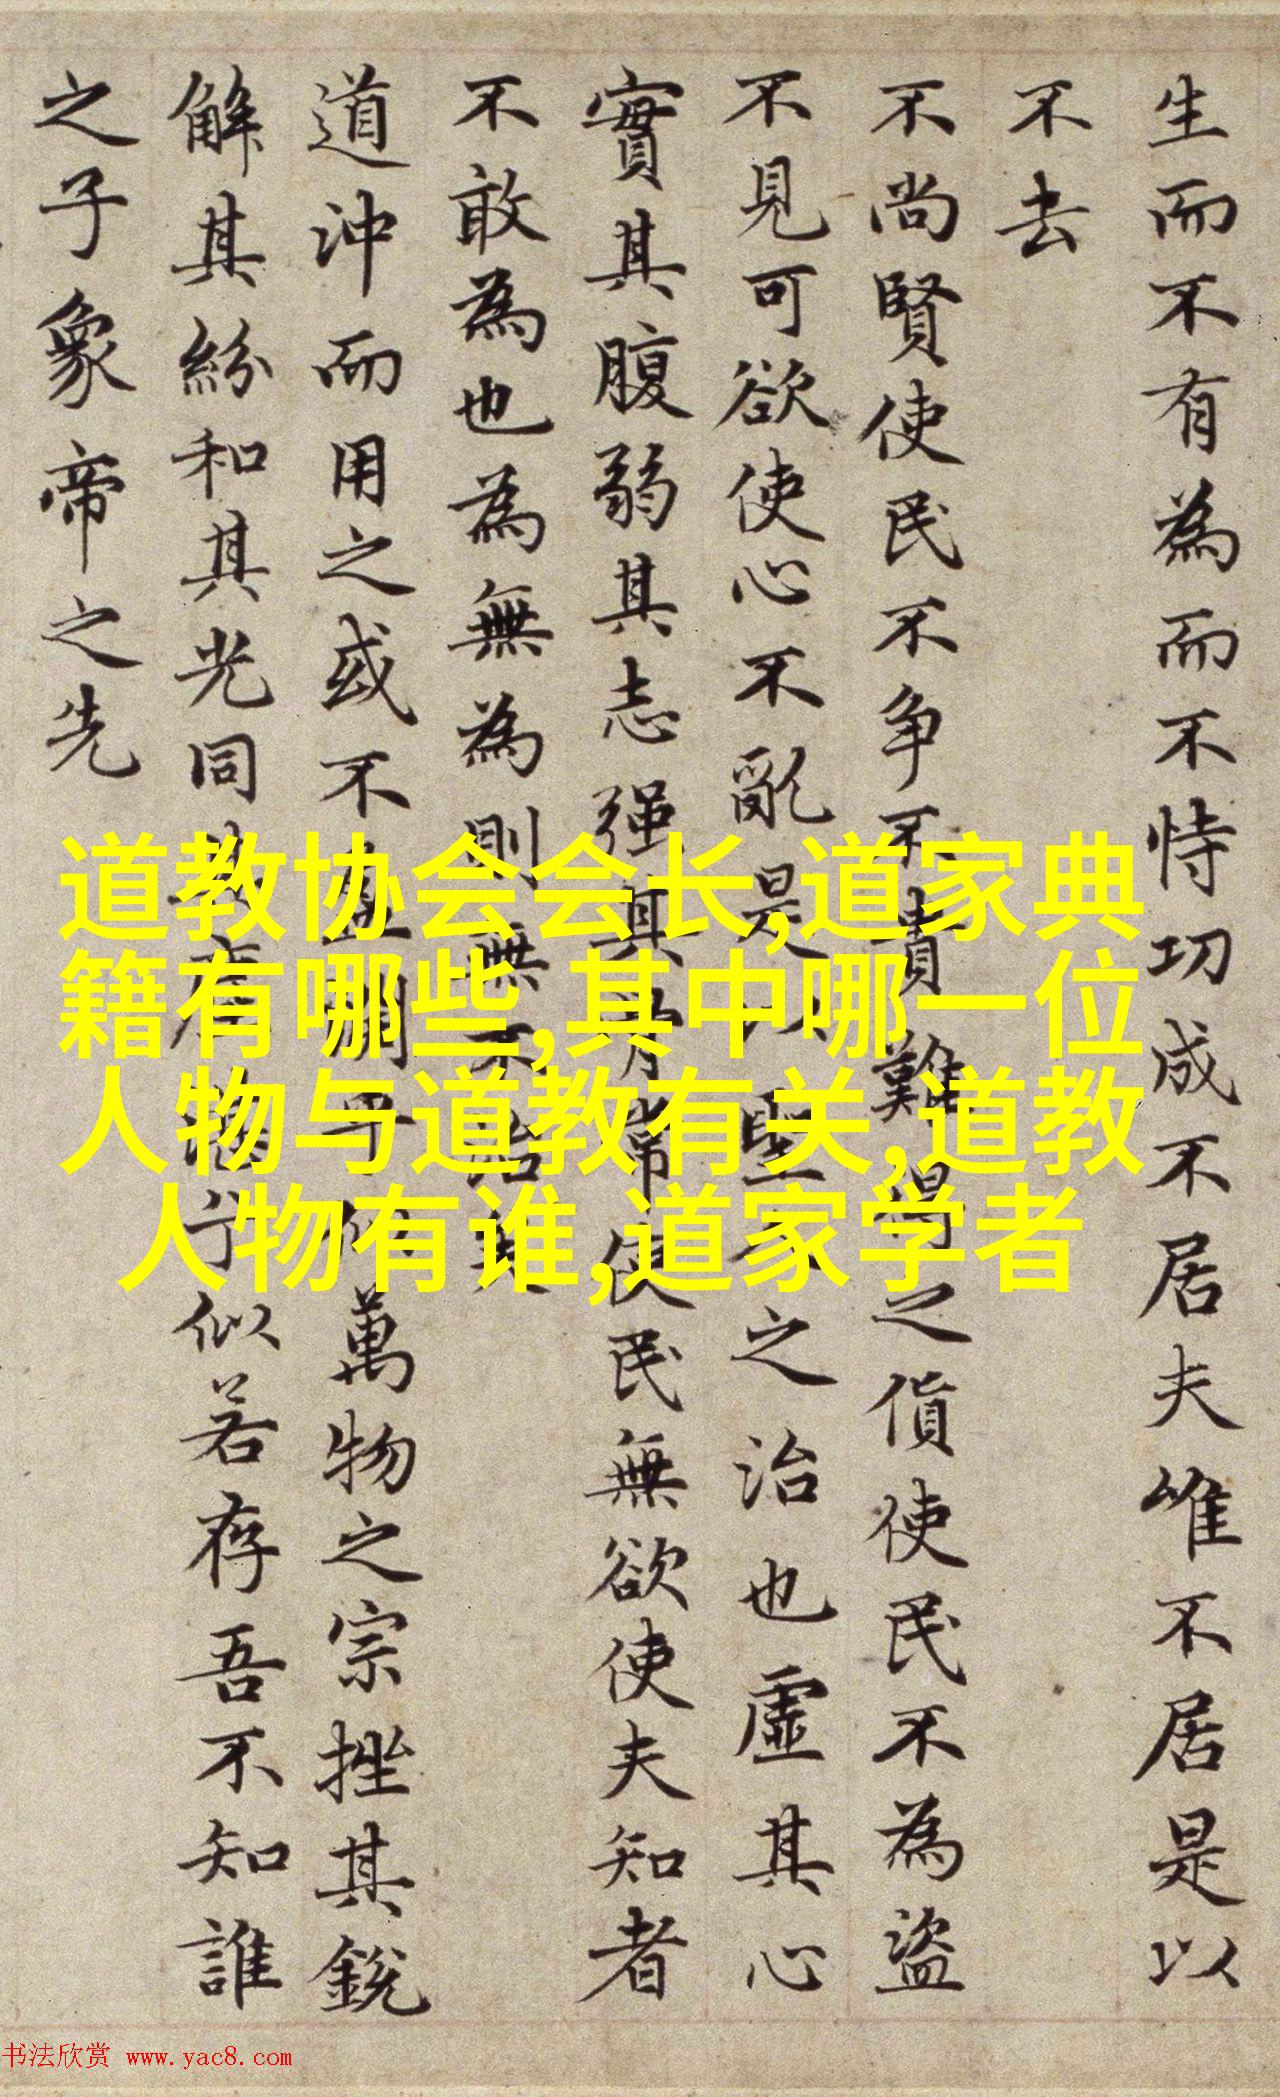 生而不有為而不恃功成不居夫唯不居是以
不去
不尚賢使民不争不貴難得之貨使民不為盜
不見可欲使心不亂是以聖人之治也虛其心
實其腹弱其志强其骨常使民無欲使夫知者
不敢為也為無為則無不治矣
道沖而用之或不盈淵乎似萬物之宗挫其銳
解其紛和其光同其塵湛兮似若存吾不知誰
之子象帝之先
道教协会会长,道家典
籍有哪些,其中哪一位
人物与道教有关,道教
人物有谁,道家学者
书法欣赏 www.yac8.com